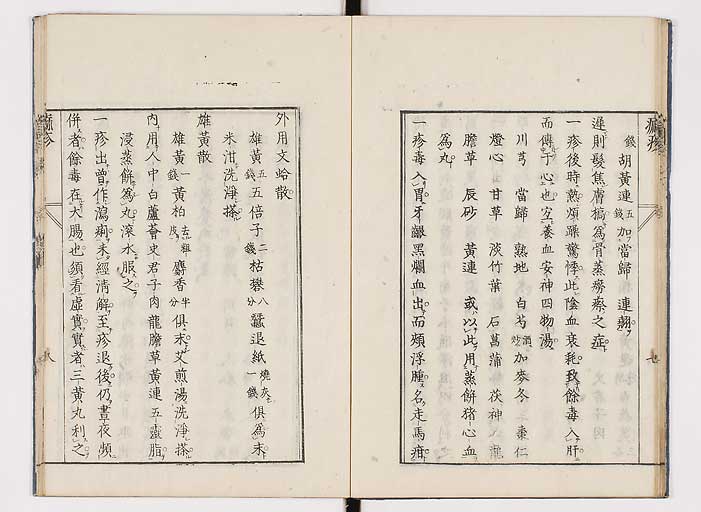 錢胡黃連五錢加當歸 連翹
遲則髮焦膚槁爲骨蒸癆瘵之症
一疹後時熱煩躁驚悸此陰血衰耗致餘毒入肝
而傳于心也宜養血安神四物湯
川芎 當歸 熟地 白芍酒炒加麥冬 棗仁
燈心 甘草 淡竹葉 石菖蒲 茯神 龍
膽草 辰砂 黃連 或以此用蒸餅猪心血
爲丸
一疹毒入胃牙齦黑爛血出而頰浮腫名走馬疳
外用文蛤散
雄黃五錢五倍子二錢枯礬八分蠶退紙燒灰一錢俱爲末
米泔洗淨搽
雄黃散
雄黃一錢黃柏去粗皮麝香半分俱末艾煎湯洗淨搽
內用人中白蘆薈史君子肉龍膽草黃連五靈脂
浸蒸餅爲丸滾水服之
一疹出曾作瀉痢未經清解至疹退後仍晝夜頻
併者餘毒在大腸也須看虛實實者三黃丸利之
麻疹